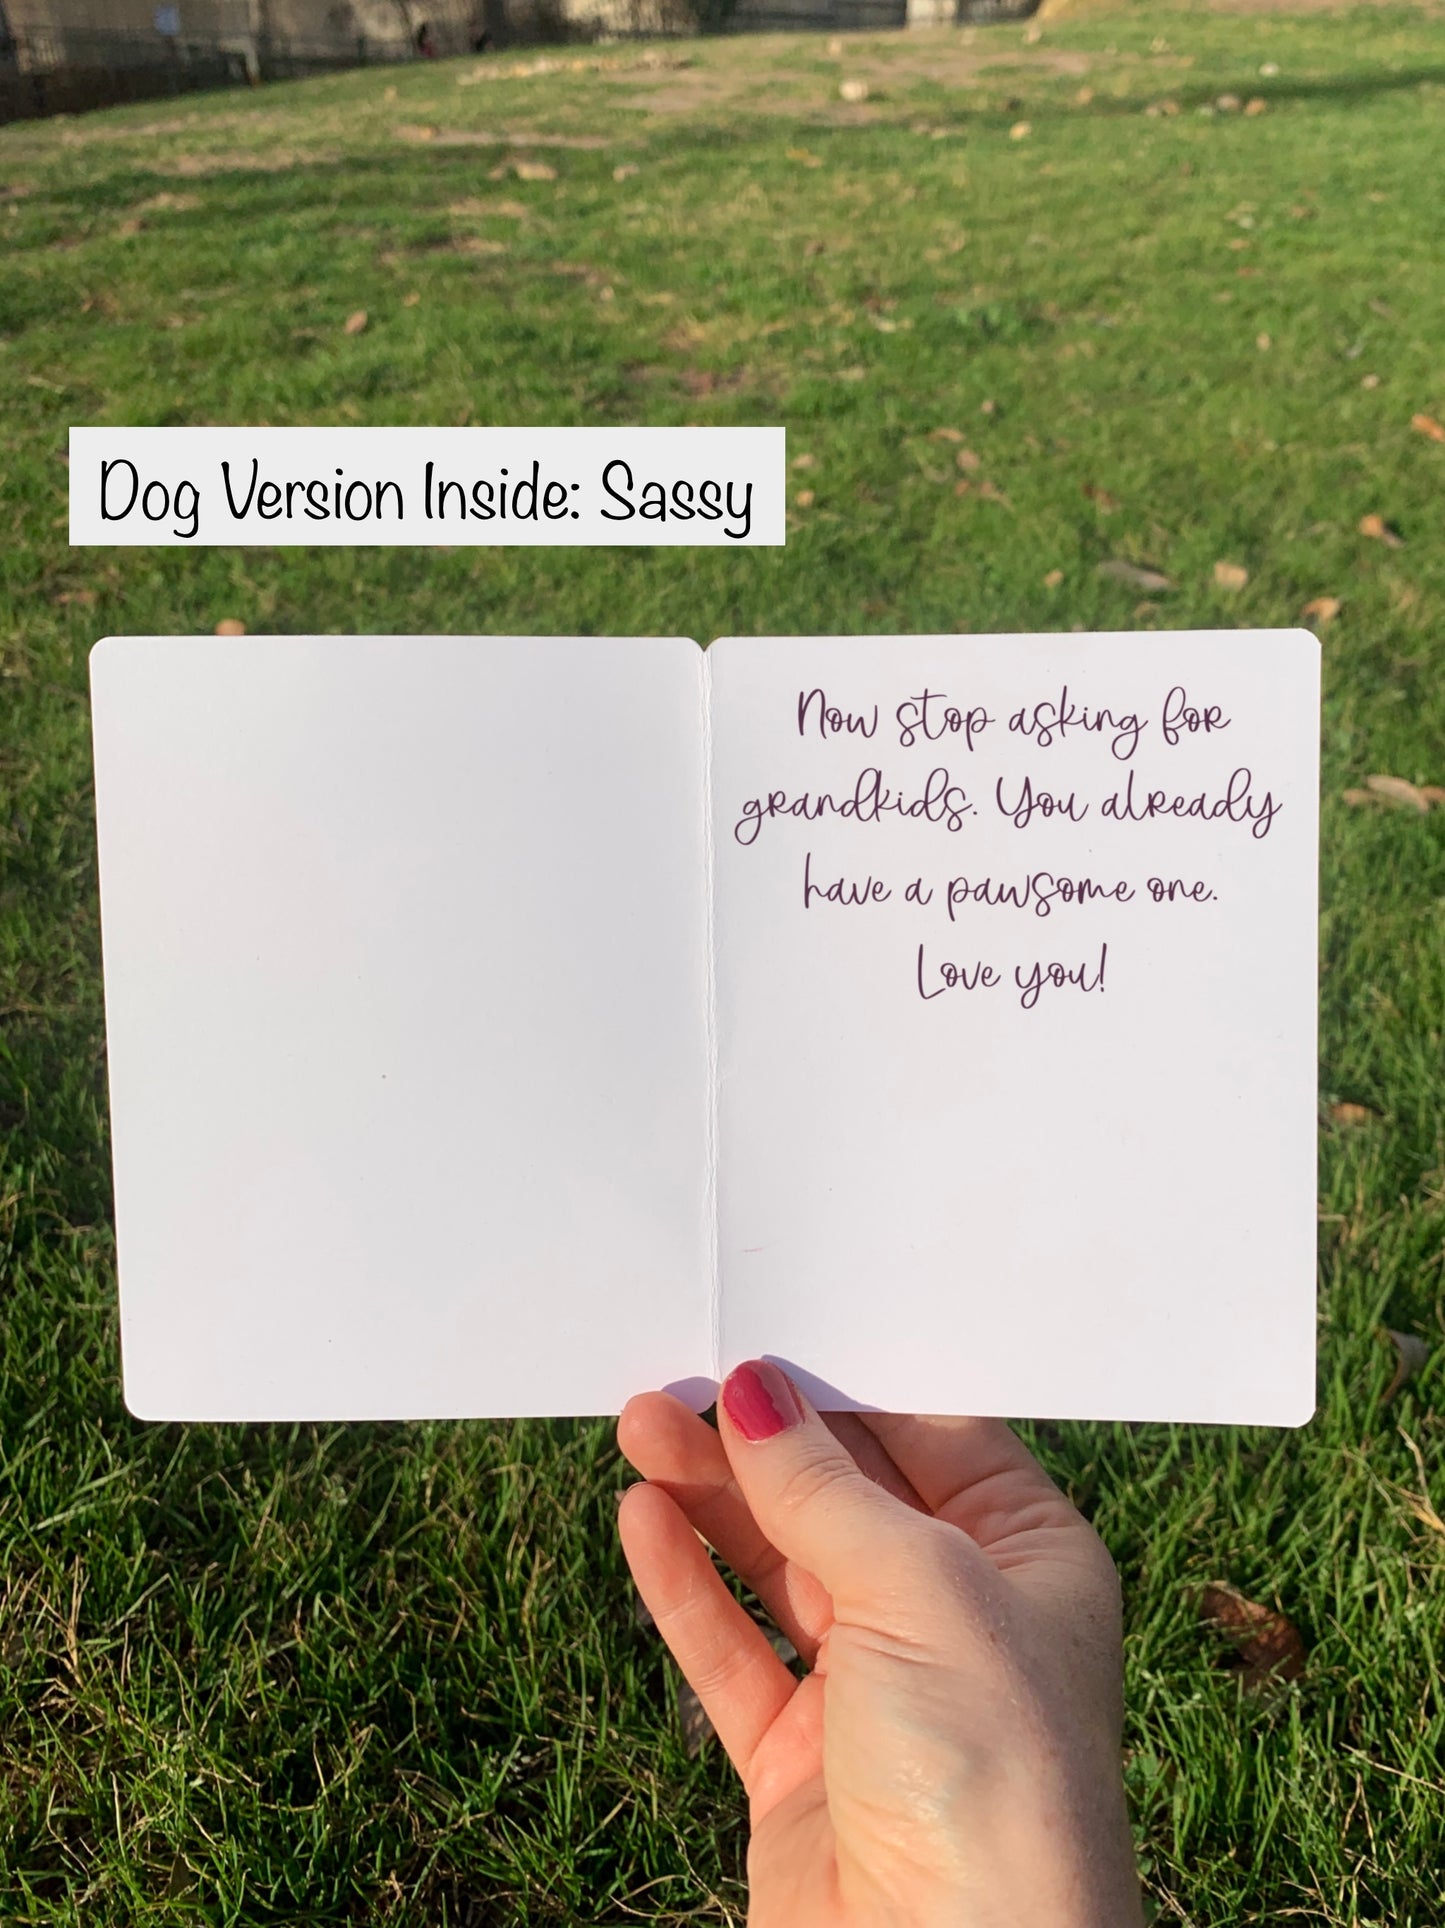 Dog Version Inside: Sassy
Now stop asking for
grandkids. You already
have a pawsome one.
Love you!